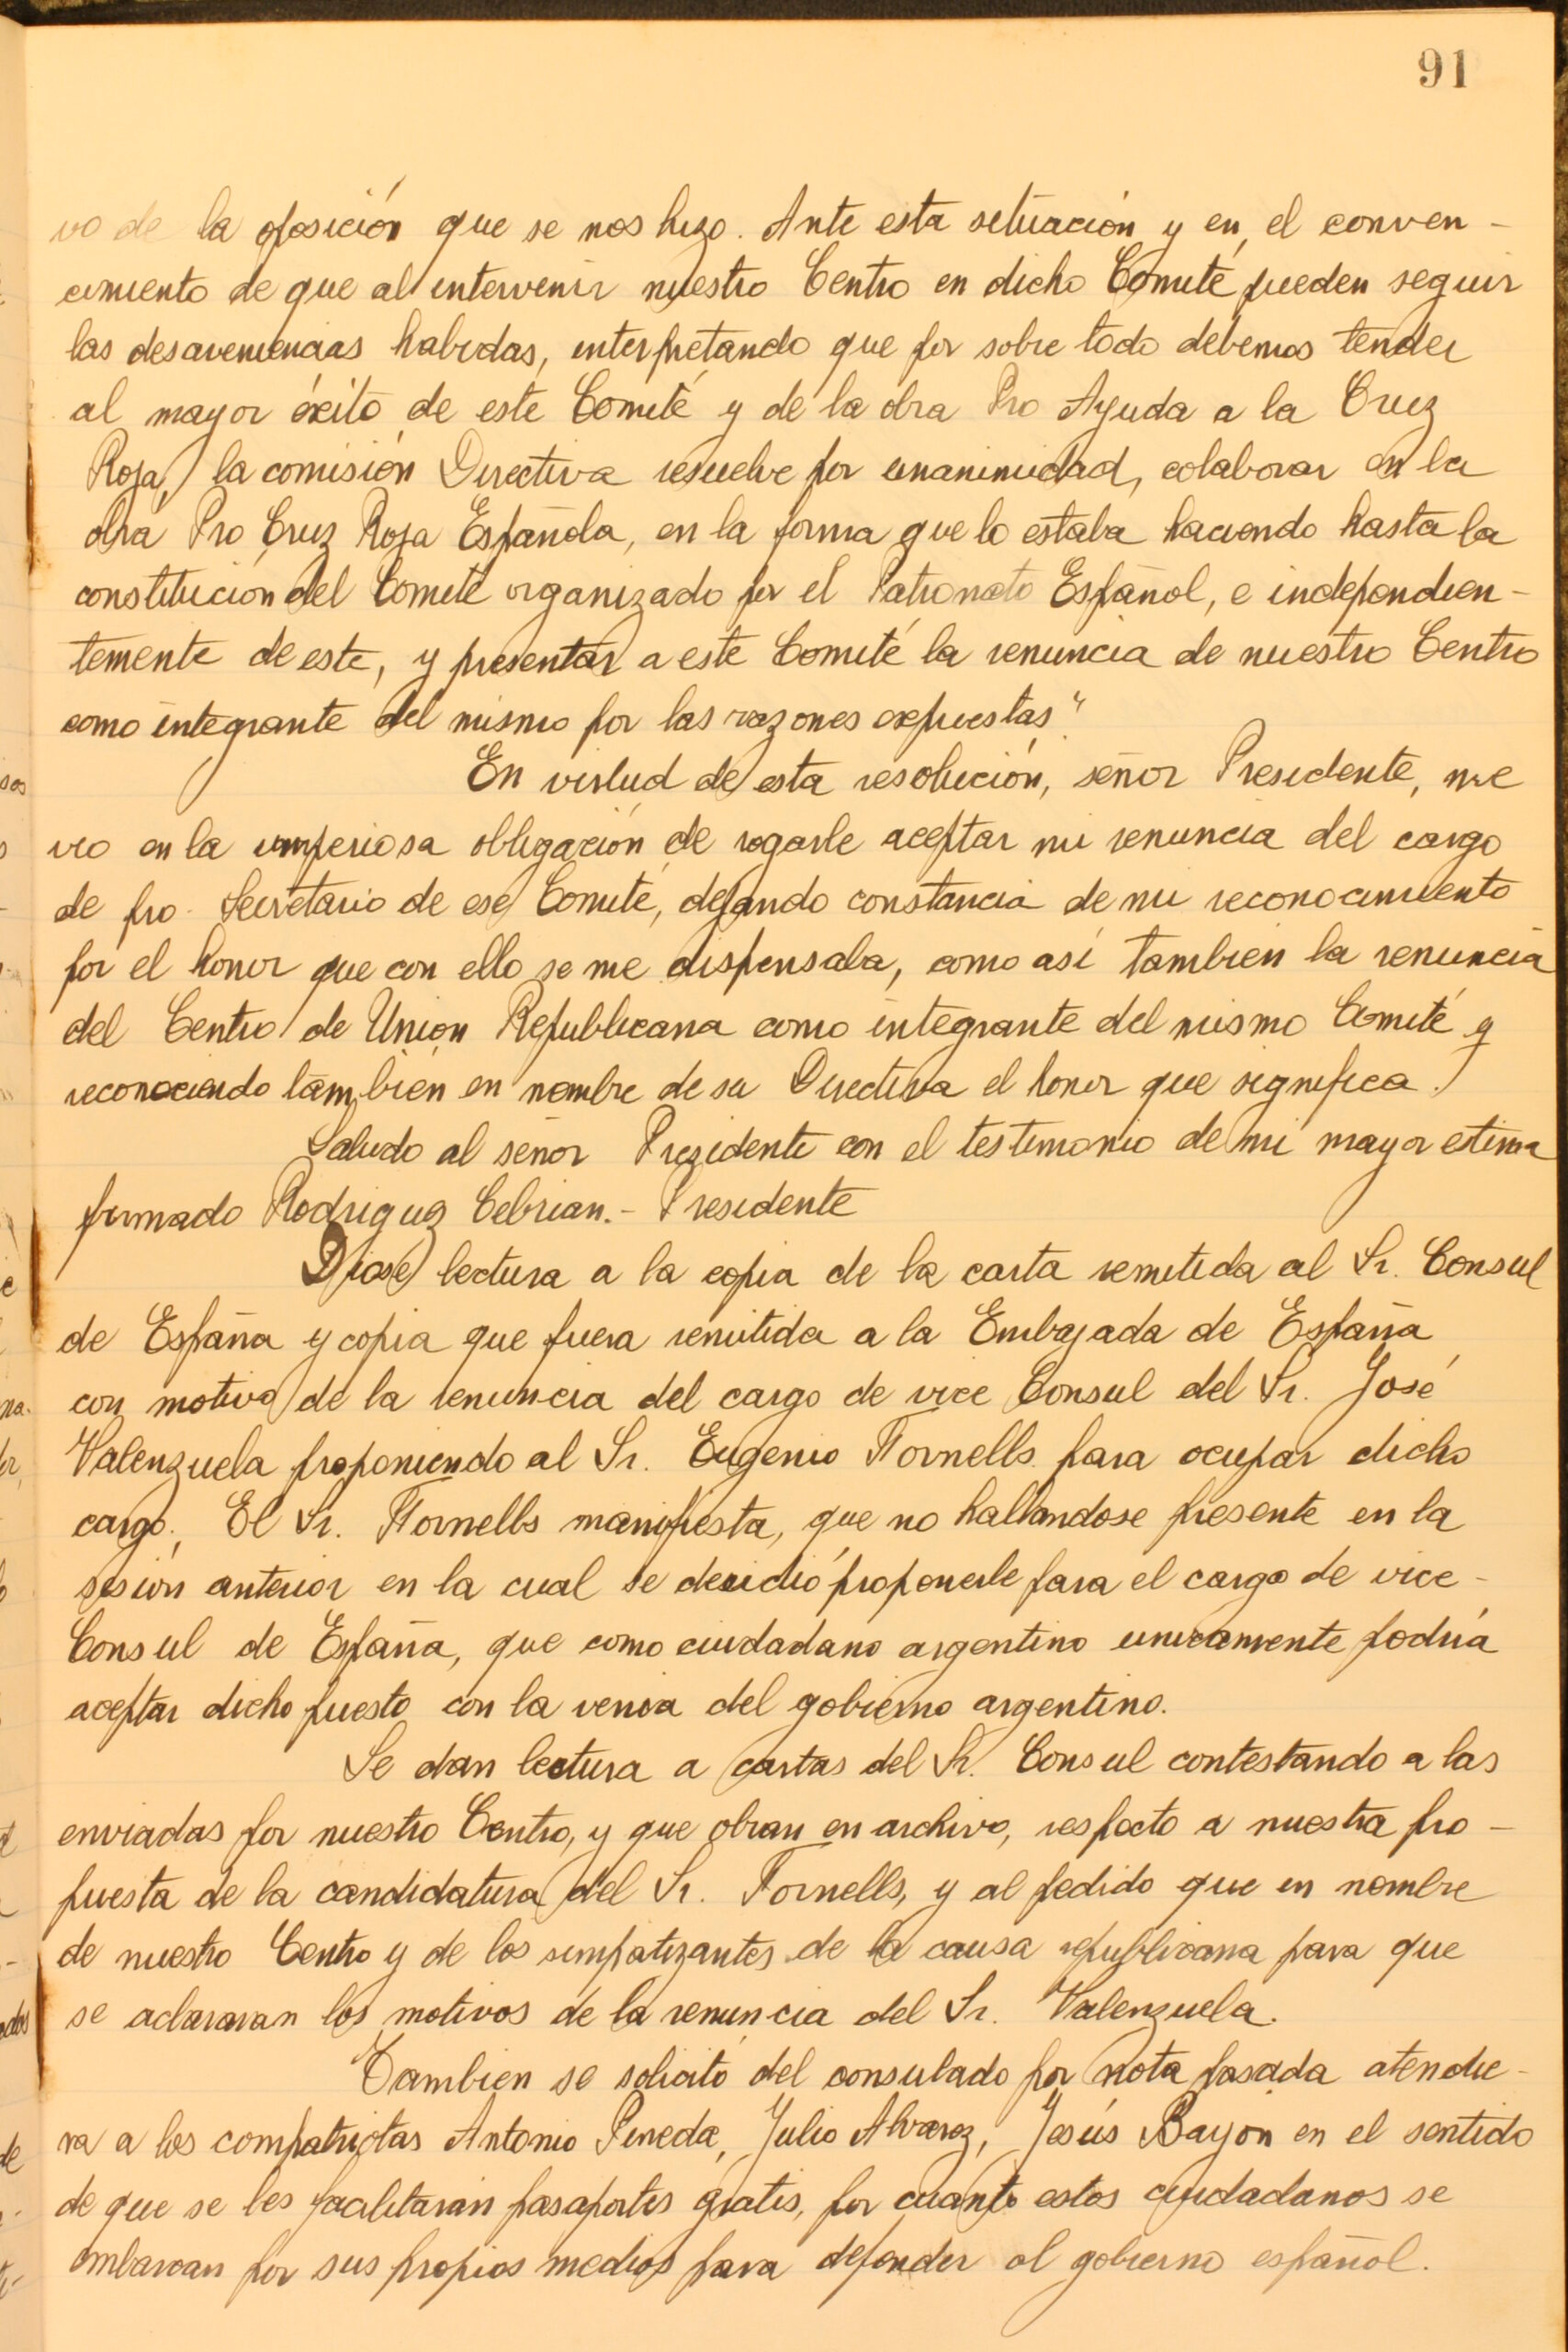 91
vo de la oposición que se nos hizo. Ante esta situación y en el conven-
cimiento de que al intervenir nuestro Centro en dicho Comité pueden seguir
las desaveniencias habidas, interpretando que por sobre todo debemos tender
al mayor éxito de este Comité y de la obra Pro Ayuda a la Cruz
Roja, la comisión Directiva resuelve por unanimidad, colaborar en la
obra Pro Cruz Roja Española, en la forma que lo estaba haciendo hasta la
constitución del Comité organizado por el Patronato Español, e independien-
temente de este, y presentar a este Comité la renuncia de nuestro Centro
como integrante del mismo por las razones expuestas"
En virtud de esta resolución, señor Presidente, me
veo en la imperiosa obligación de rogarle aceptar mi renuncia del cargo
de pro-Secretario de ese Comité, dejando constancia de mi reconocimiento
por el honor que con ello se me dispensaba, como así tambien la renuncia
del Centro de Unión Republicana como integrante del mismo Comité y
reconociendo también en nombre de su Directiva el honor que significa.
Saludo al señor Presidente con el testimonio de mi mayor estima
firmado Rodriguez Cebrian.- Presidente
Diose lectura a la copia de la carta remitida al Sr. Consul
de España y copia que fuera remitida a la Embajada de España
con motivo de la renuncia del cargo de vice Consul del Sr. José
Valenzuela proponiendo al Sr. Eugenio Tornells para ocupar dicho
cargo. El Sr. Tornells manifiesta, que no hallandose presente en la
sesión anterior en la cual se decidió proponerle para el cargo de vice-
Consul de España, que como ciudadano argentino unicamente podría
aceptar dicho puesto con la venia del gobierno argentino.
Se dan lectura a cartas del Sr. Consul contestando a las
enviadas por nuestro Centro, y que obran en archivo, respecto a nuestra pro-
puesta de la candidatura del Sr. Tornells, y al pedido que en nombre
de nuestro Centro y de los simpatizantes de la causa republicana para que
se aclararan los motivos de la renuncia del Sr. Valenzuela.
Tambien se solicitó del consulado por nota pasada atendie-
ra a los compatriotas Antonio Pineda, Julio Alvarez, Jesús Bayón en el sentido
de que se les facilitaran pasaportes gratis, por cuanto estos ciudadanos se
embarcan por sus propios medios para defender al gobierno español.